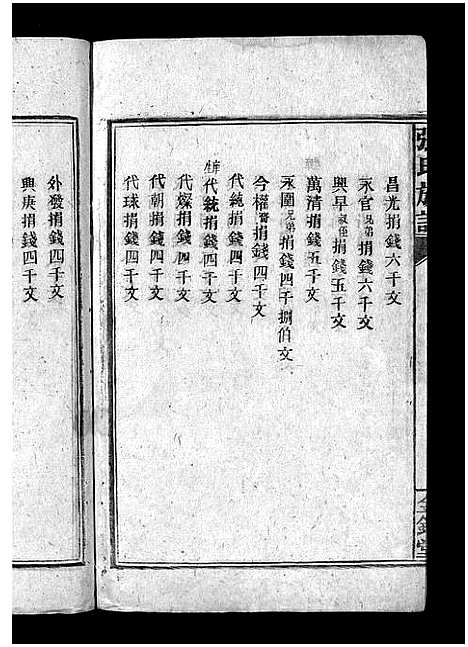 張氏族譜
昌光捐錢六千文
永官兄弟捐錢六千文
興早叔侄捐錢五千文
萬清捐錢五千文
永圍兄弟捐錢四千捌伯文
今權捐錢四千文
代純捐錢四千文
代統捐錢四千文
代燦捐錢四千文
代朝捐錢四千文
代球捐錢四千文
外發捐錢四千文
興庚捐錢四千文